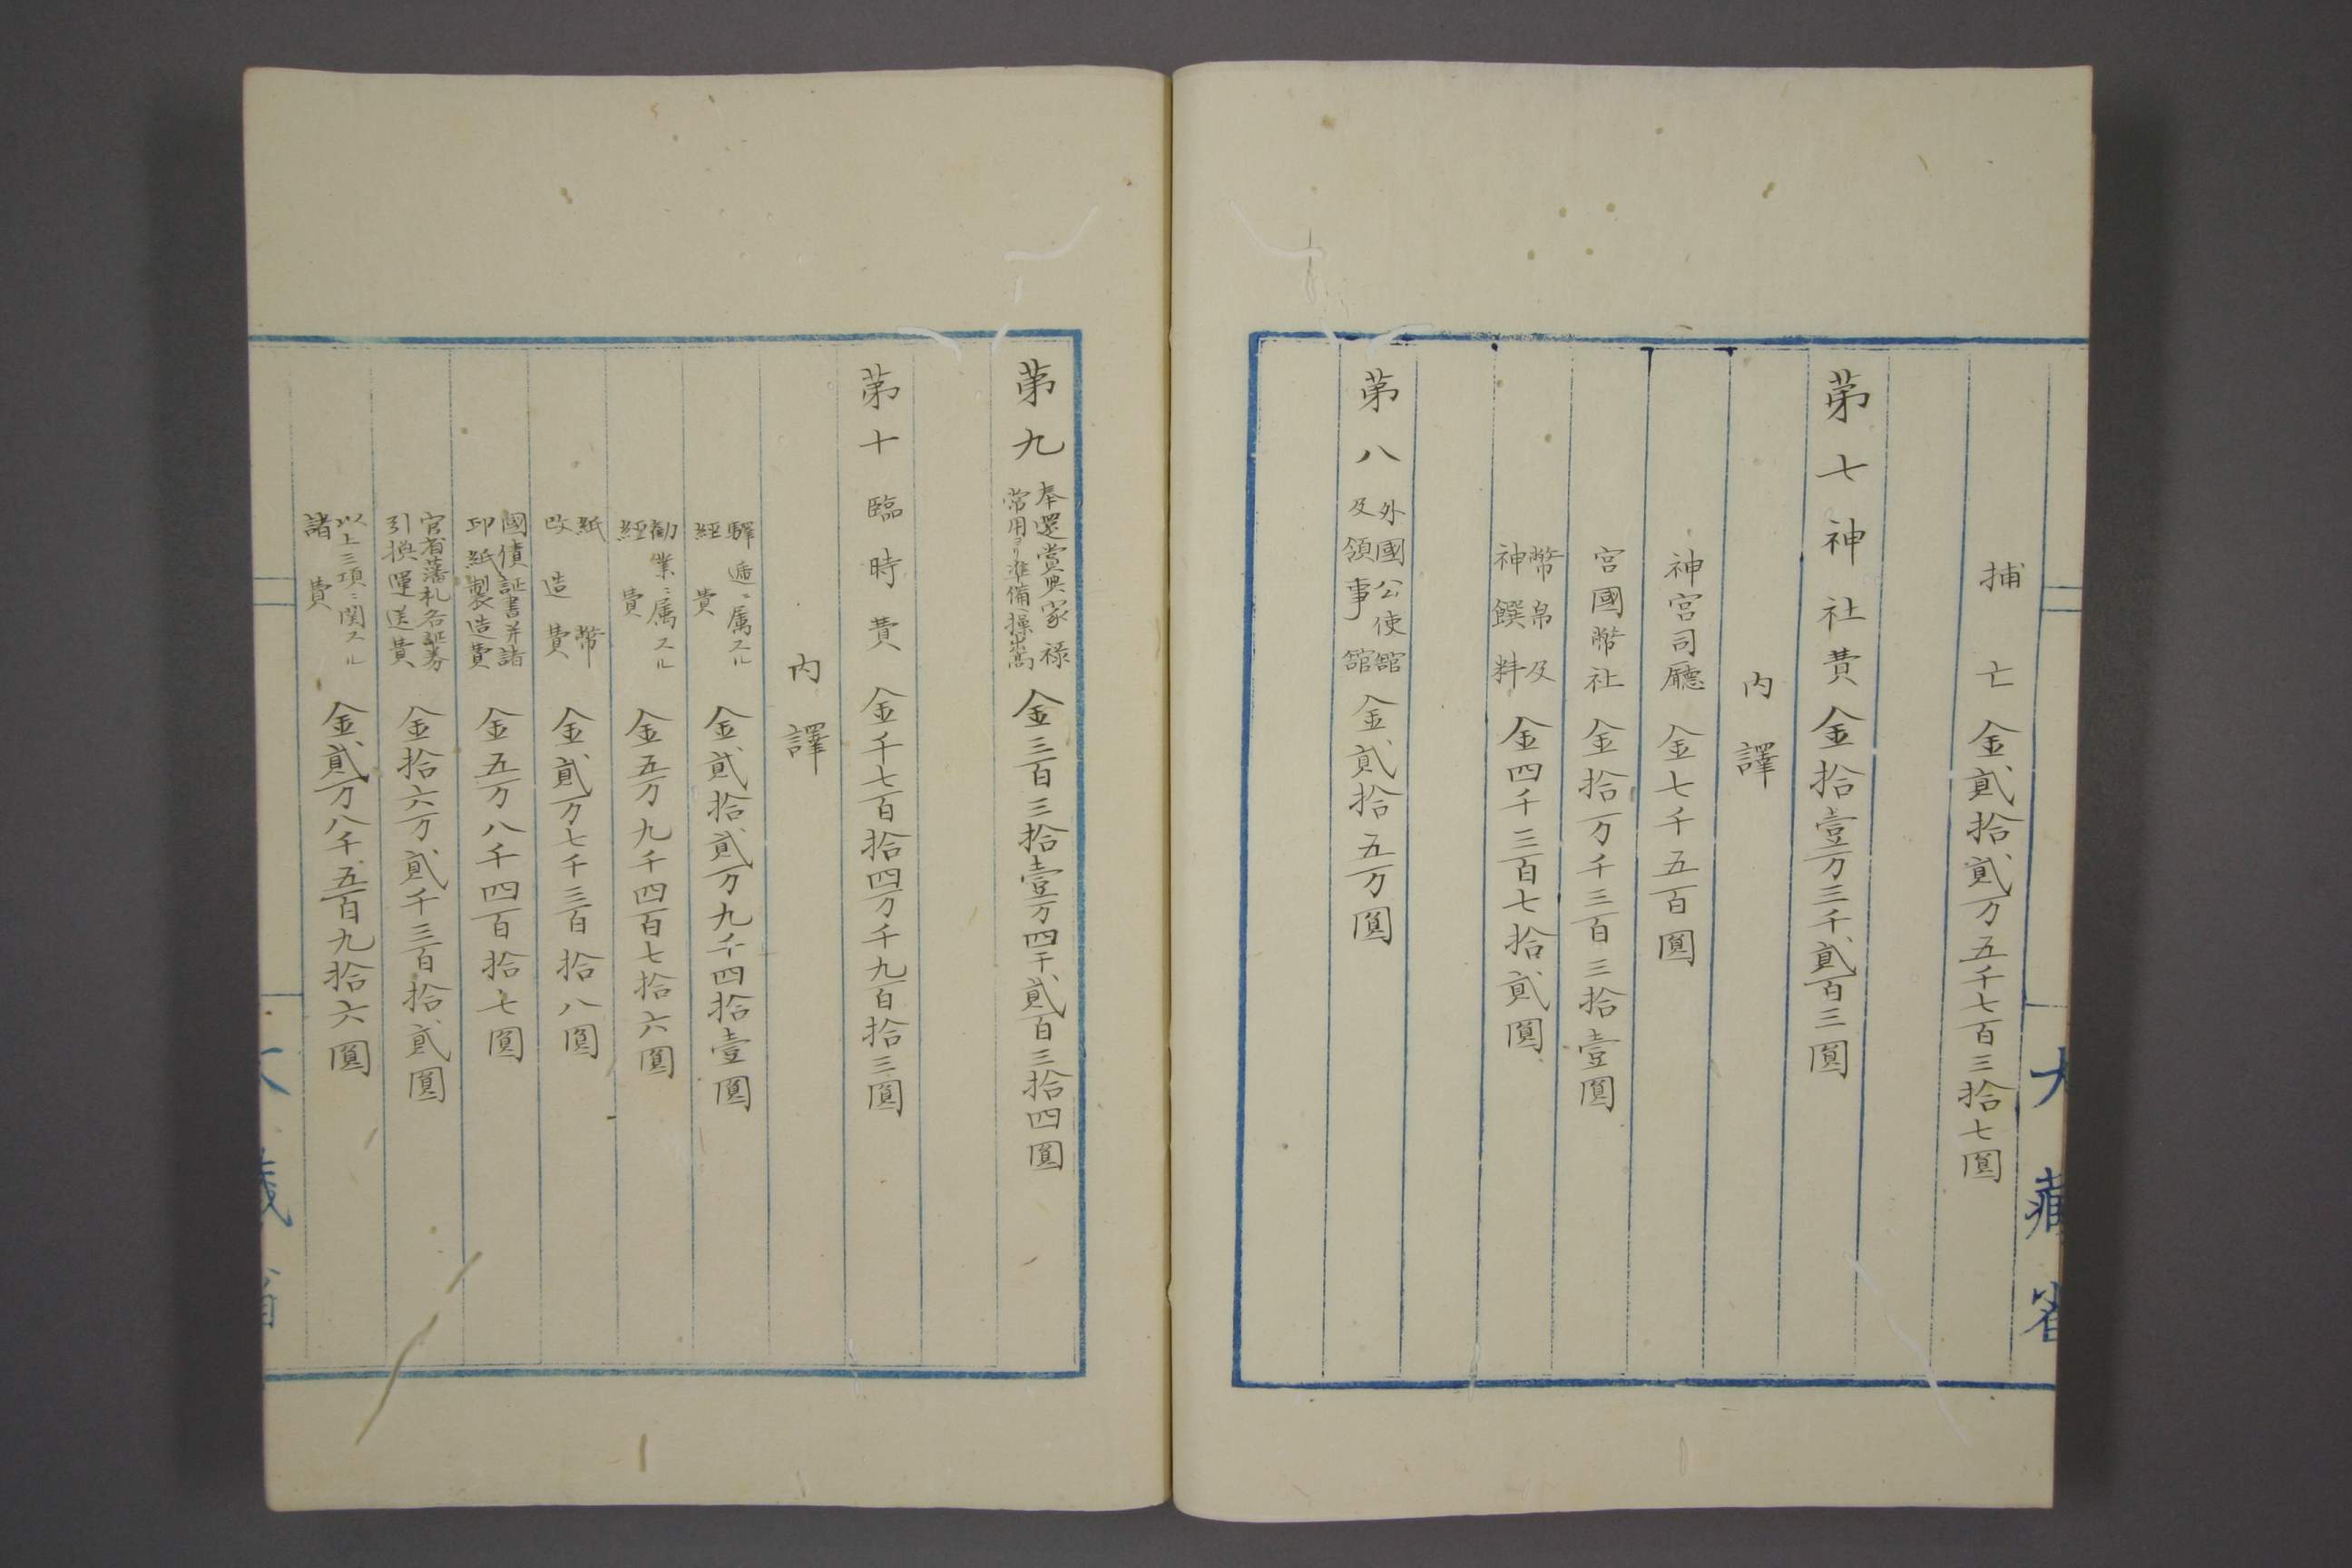 大藏省
捕亡 金貳拾貳万五千七百三拾七圓
第七 神社費 金拾壹万三千貳百三圓
内譯
神宮司廳 金七千五百圓
官國幣社 金拾万千三百三拾壹圓
幣帛及
神饌料 金四千三百七拾貳圓
第八 外國公使舘
及領事舘 金貳拾五万圓
第九 奉還賞典家禄
常用ヨリ準備ヘ操出高 金三百三拾壹万四千貳百三拾四圓
第十 臨時費 金千七百拾四万千九百拾三圓
内譯
驛逓ニ属スル
經費 金貳拾貳万九千四拾壹圓
勸業ニ属スル
經費 金五万九千四百七拾六圓
紙幣
改造費 金貳万七千三百拾八圓
國債証書并諸
印紙製造費 金五万八千四百拾七圓
官省藩札各証券
引換運送費 金拾六万貳千三百拾貳圓
以上三項ニ関スル
諸費 金貳万八千五百九拾六圓
大藏省